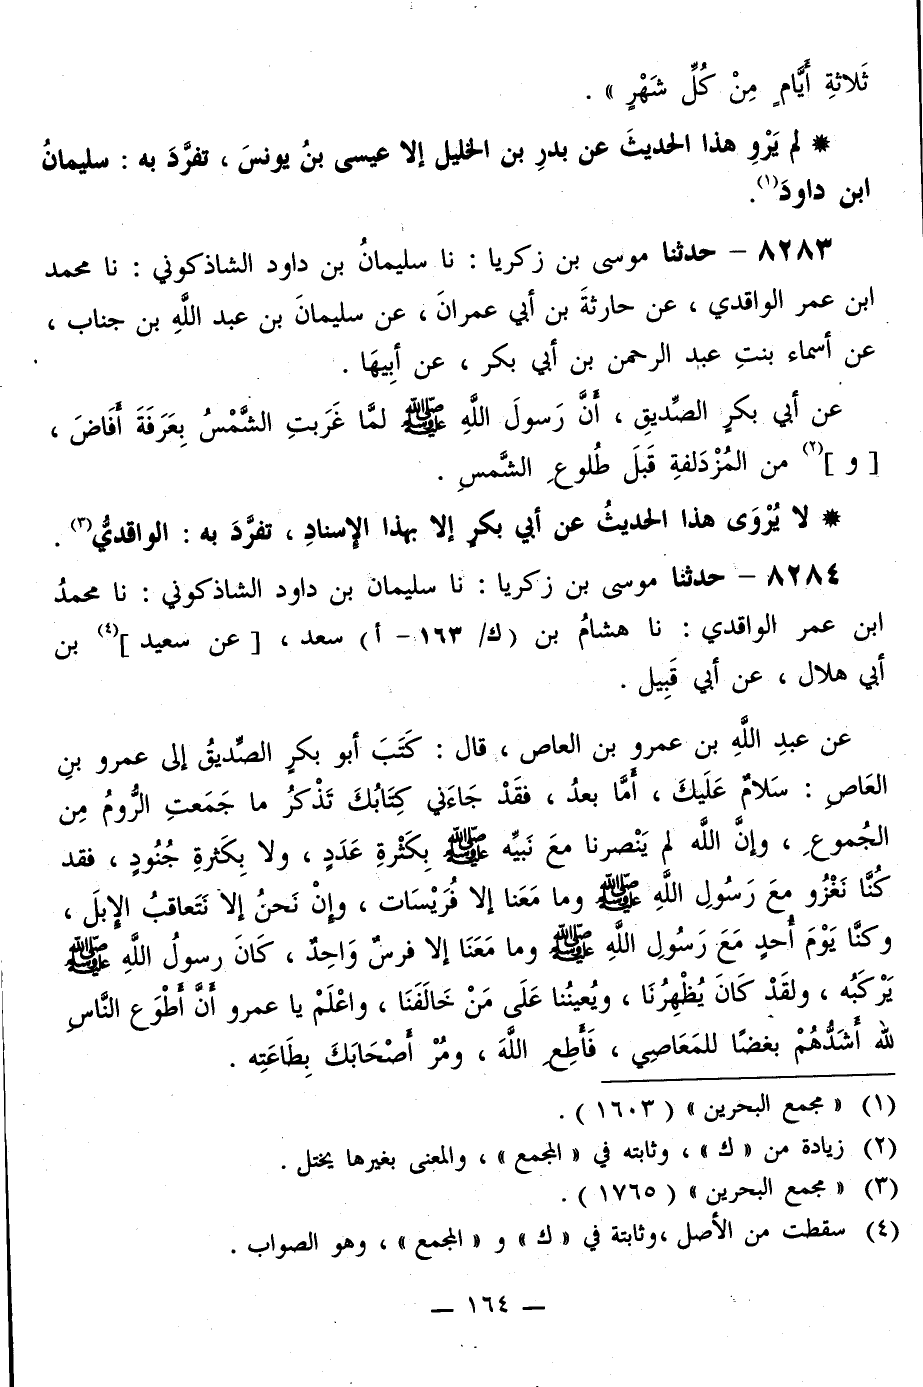 ثَلاثةِ أَيَّامٍ مِنْ كُلِّ شَهْرٍ » .
✷ لم يَرْوِ هذا الحديثَ عن بدرِ بن الخليل إلا عيسى بنُ يونسَ ، تفرَّدَ به : سليمانُ
ابن داودَ(١).
٨٢٨٣ – حدثنا موسى بن زكريا : نا سليمانُ بن داود الشاذكوني : نا محمد
ابن عمر الواقدي ، عن حارثةَ بن أبي عمرانَ ، عن سليمانَ بن عبد اللَّهِ بن جناب ،
عن أسماء بنتِ عبد الرحمن بن أبي بكر ، عن أبِيهَا .
عن أبي بكرٍ الصِّديقِ ، أَنَّ رَسولَ اللَّهِ ﷺ لمَّا غَرَبتِ الشَّمْسُ بِعَرَفَةَ أَفَاضَ ،
[ و ](٢) من المُزْدَلفةِ قَبلَ طُلوعِ الشَّمسِ .
✷ لا يُرْوَى هذا الحديثُ عن أبي بكرٍ إلا بهذا الإسنادِ ، تفرَّدَ به : الواقديُّ(٣) .
٨٢٨٤ – حدثنا موسى بن زكريا : نا سليمان بن داود الشاذكوني : نا محمدُ
ابن عمر الواقدي : نا هشامُ بن (ك/ ١٦٣ – أ) سعد ، [ عن سعيد ](٤) بن
أبي هلال ، عن أبي قَبِيل .
عن عبدِ اللَّهِ بن عمرو بن العاص ، قال : كَتَبَ أبو بكرٍ الصِّديقُ إلى عمرو بنِ
العَاصِ : سَلامٌ عَلَيكَ ، أَمَّا بعدُ ، فقَدْ جَاءَني كِتَابُكَ تَذْكرُ ما جَمَعتِ الرُّومُ مِن
الجُموعِ ، وإنَّ اللَّه لم يَنْصرنا معَ نَبيِّه ﷺ بِكَثْرةِ عَدَدٍ ، ولا بِكَثرةِ جُنُودٍ ، فقد
كُنَّا نَغْزُو معَ رَسُولِ اللَّهِ ﷺ وما مَعَنا إلا فُرَيْسَات ، وإِنْ نَحنُ إلا نَتَعاقبُ الإِبلَ ،
وكنَّا يَوْمَ أُحدٍ مَعَ رَسُولِ اللَّهِ ﷺ وما مَعَنَا إلا فرسٌ وَاحِدٌ ، كَانَ رسولُ اللَّهِ ﷺ
يَرْكَبُه ، ولقَدْ كَانَ يُظْهِرُنَا ، ويُعينُنا عَلَى مَنْ خَالَفَنَا ، واعْلَمْ يا عمرو أَنَّ أَطْوَع النَّاسِ
للهِ أَشَدُّهُمْ بغضًا للمَعَاصِي ، فَأَطِعِ اللَّهَ ، ومُرْ أَصْحَابَكَ بِطَاعَتِه .
(١) « مجمع البحرين » ( ١٦٠٣ ) .
(٢) زيادة من « ك » ، وثابته في « المجمع » ، والمعنى بغيرها يختل .
(٣) « مجمع البحرين » ( ١٧٦٥ ) .
(٤) سقطت من الأصل ،وثابتة في « ك » و « المجمع » ، وهو الصواب .
— ١٦٤ —